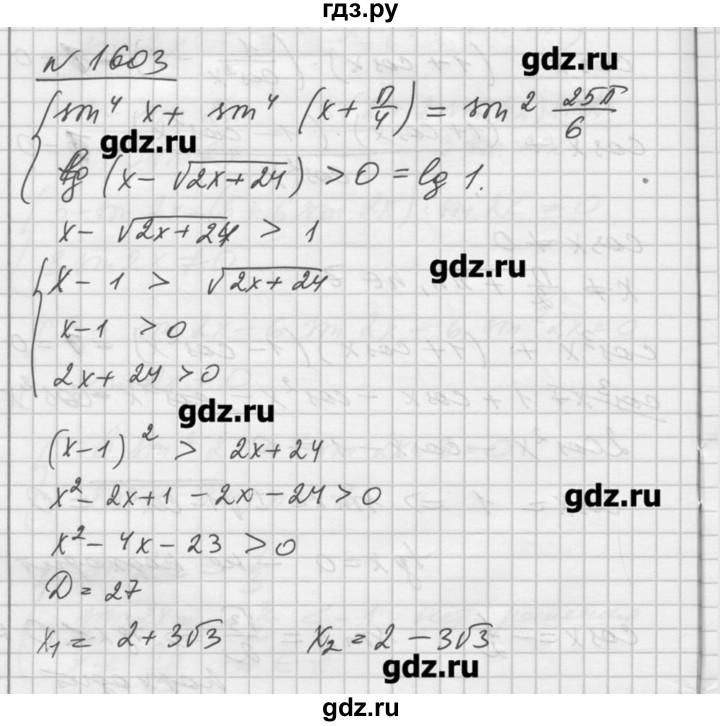 гдз.ру
N 1603
gdz.ru
sin⁴ x + sin⁴ (x + π/4) = sin² 25π/6
gdz.ru
lg (x - √2x+24) > 0 = lg 1.
x - √2x+24 > 1
gdz.ru
x - 1 > √2x+24
x-1 > 0
2x+24 > 0
gdz.ru
(x-1)² > 2x+24
x² - 2x+1 - 2x - 24 > 0
gdz.ru
x² - 4x - 23 > 0
D = 27
x₁ = 2+3√3 x₂ = 2 - 3√3
gdz.ru
gdz.ru